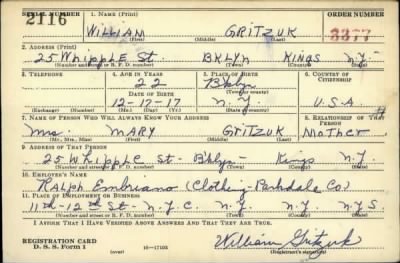 SERIAL NUMBER 1. NAME (Print) ORDER NUMBER
2116 WILLIAM GRITZUK 3377
(First) (Middle) (Last)
2. ADDRESS (Print)
25 Whipple St. BKLYN KINGS N.Y.
(Number and street or R. F. D. number) (Town) (County) (State)
3. TELEPHONE 4. AGE IN YEARS 5. PLACE OF BIRTH 6. COUNTRY OF CITIZENSHIP
22 Bklyn
(Town or county)
DATE OF BIRTH
12-17-17 N.Y. U.S.A.
(Exchange) (Number) (Mo.) (Day) (Yr.) (State or country)
7. NAME OF PERSON WHO WILL ALWAYS KNOW YOUR ADDRESS 8. RELATIONSHIP OF THAT PERSON
Mrs. MARY GRITZUK MOTHER
(Mr., Mrs., Miss) (First) (Middle) (Last)
9. ADDRESS OF THAT PERSON
25 Whipple St - Bklyn - Kings N.Y.
(Number and street or R. F. D. number) (Town) (County) (State)
10. EMPLOYER'S NAME
Ralph Embriano (Clothing - Parkdale Co)
11. PLACE OF EMPLOYMENT OR BUSINESS
11th - 12th St - N.Y.C. N.Y. N.Y.S.
(Number and street or R. F. D. number) (Town) (County) (State)
I AFFIRM THAT I HAVE VERIFIED ABOVE ANSWERS AND THAT THEY ARE TRUE.
REGISTRATION CARD
D. S. S. Form 1 (over) 16—17105 William Gritzuk
(Registrant's signature)